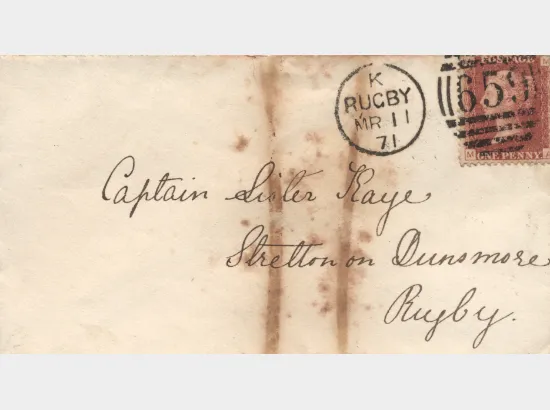 K
RUGBY
MR 11
71
659
POSTAGE
M
ONE PENNY
Captain Sister Kaye
Stretton on Dunsmore
Rugby.